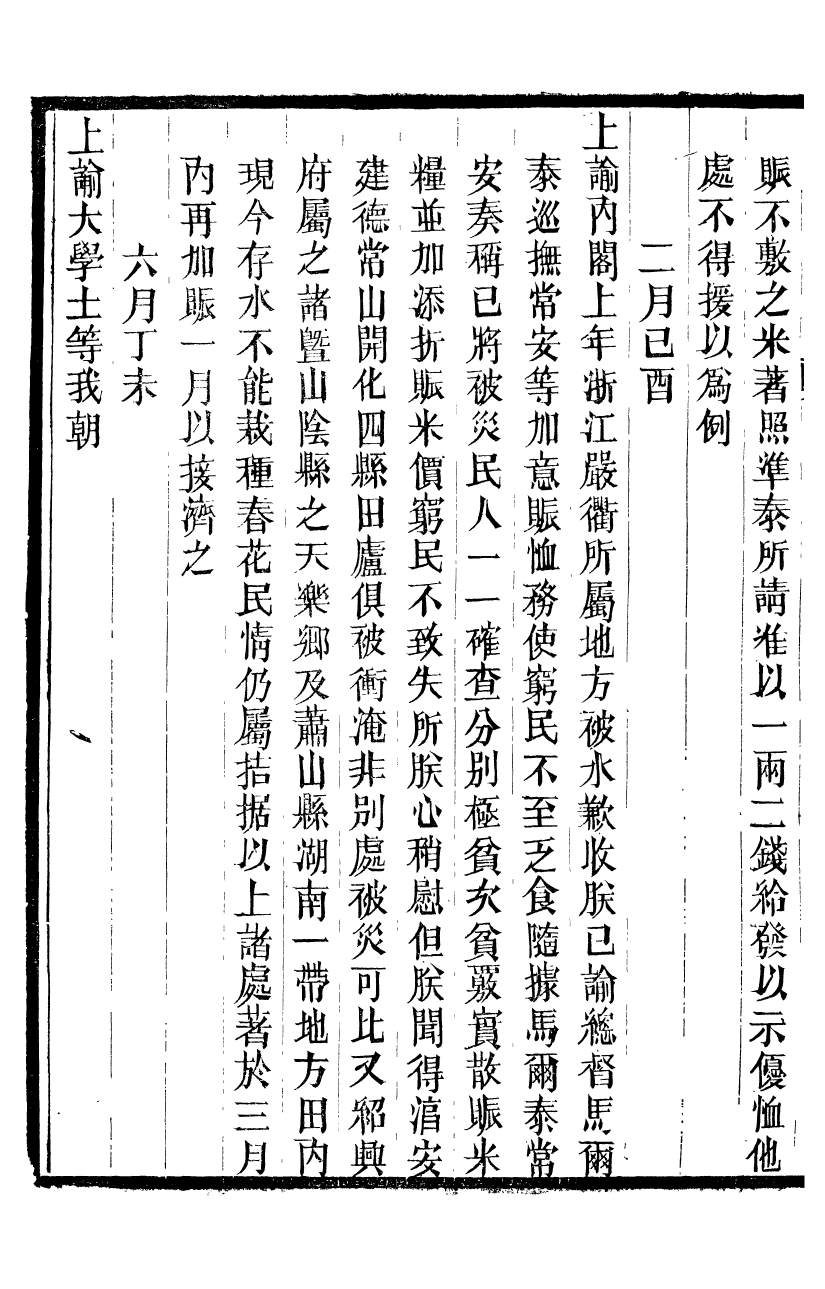 賑不敷之米著照準泰所請准以一兩二錢給發以示優恤他
處不得援以爲例
二月己酉
上諭內閣上年浙江嚴衢所屬地方被水歉收朕已諭總督馬爾
泰巡撫常安等加意賑恤務使窮民不至乏食隨據馬爾泰常
安奏稱已將被災民人一一確查分別極貧次貧覈實散賑米
糧並加添折賑米價窮民不致失所朕心稍慰但朕聞得淯安
建德常山開化四縣田廬俱被衝淹非別處被災可比又紹興
府屬之諸暨山陰縣之天樂鄉及蕭山縣湖南一帶地方田內
現今存水不能栽種春花民情仍屬拮据以上諸處著於三月
內再加賑一月以接濟之
六月丁未
上諭大學士等我朝